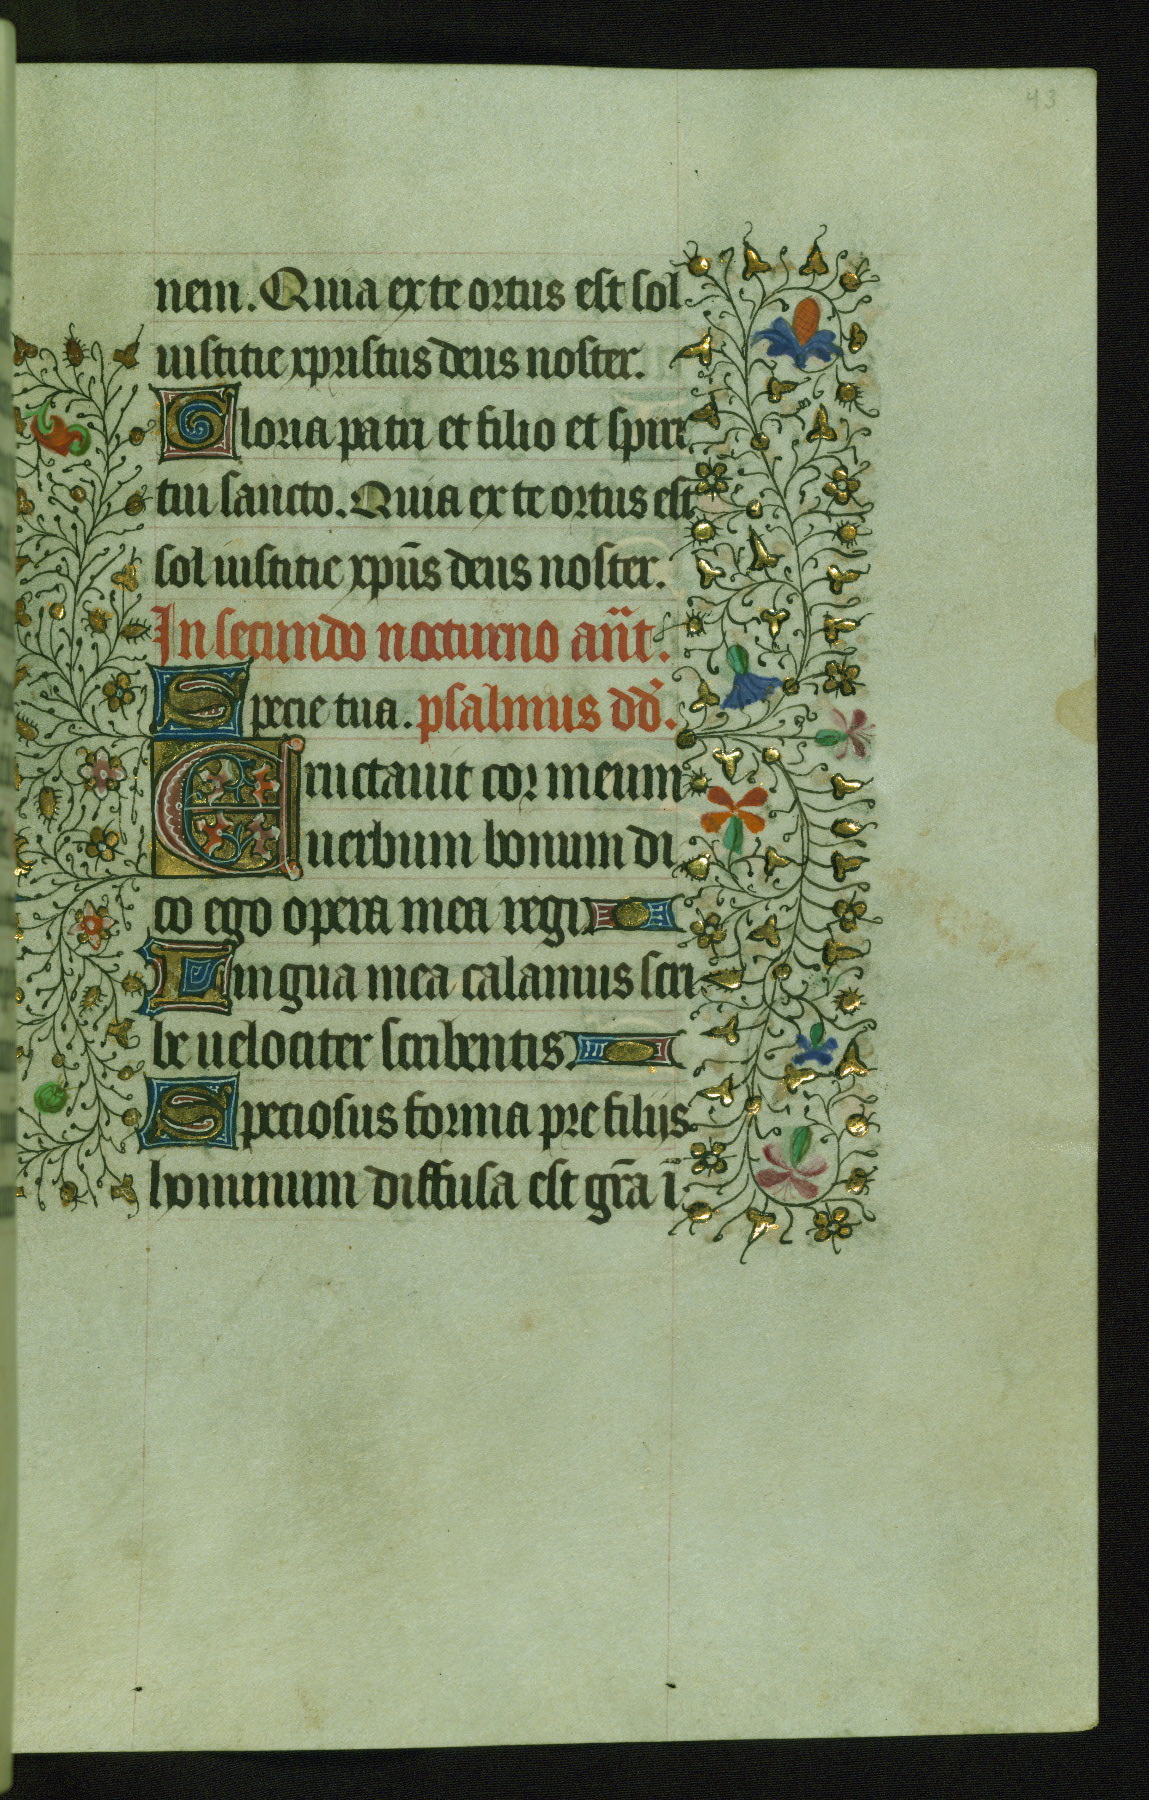 43
nem. Quia ex te ortus est sol
iusticie xpristus deus noster.
Gloria patri et filio et spiri
tui sancto. Quia ex te ortus est
sol iusticie xpūs deus noster.
In secundo nocturno an̄t.
Specie tua. psalmus dd̄.
Eructauit cor meum
uerbum bonum di
co ego opera mea regi
Lingua mea calamus scri
be uelociter scribentis
Speciosus forma pre filijs
hominum diffusa est gr̄a ī